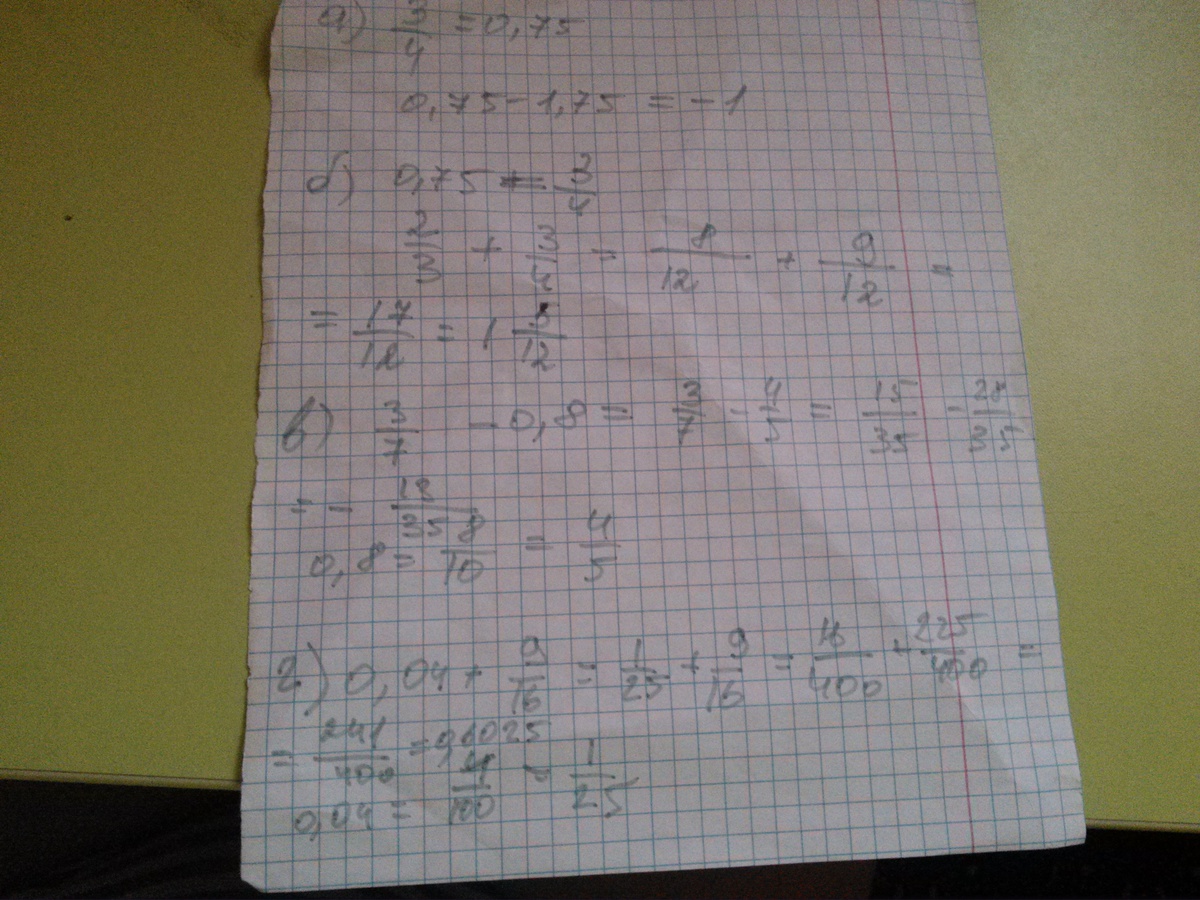 а) 3/4 = 0,75
0,75 - 1,75 = - 1
б) 0,75 = 3/4
2/3 + 3/4 = 8/12 + 9/12 =
= 17/12 = 1 5/12
в) 3/7 - 0,8 = 3/7 - 4/5 = 15/35 - 28/35
= - 13/35
0,8 = 8/10 = 4/5
г) 0,04 + 9/16 = 1/25 + 9/16 = 16/400 + 225/400 =
= 241/400 = 0,6025
0,04 = 4/100 = 1/25